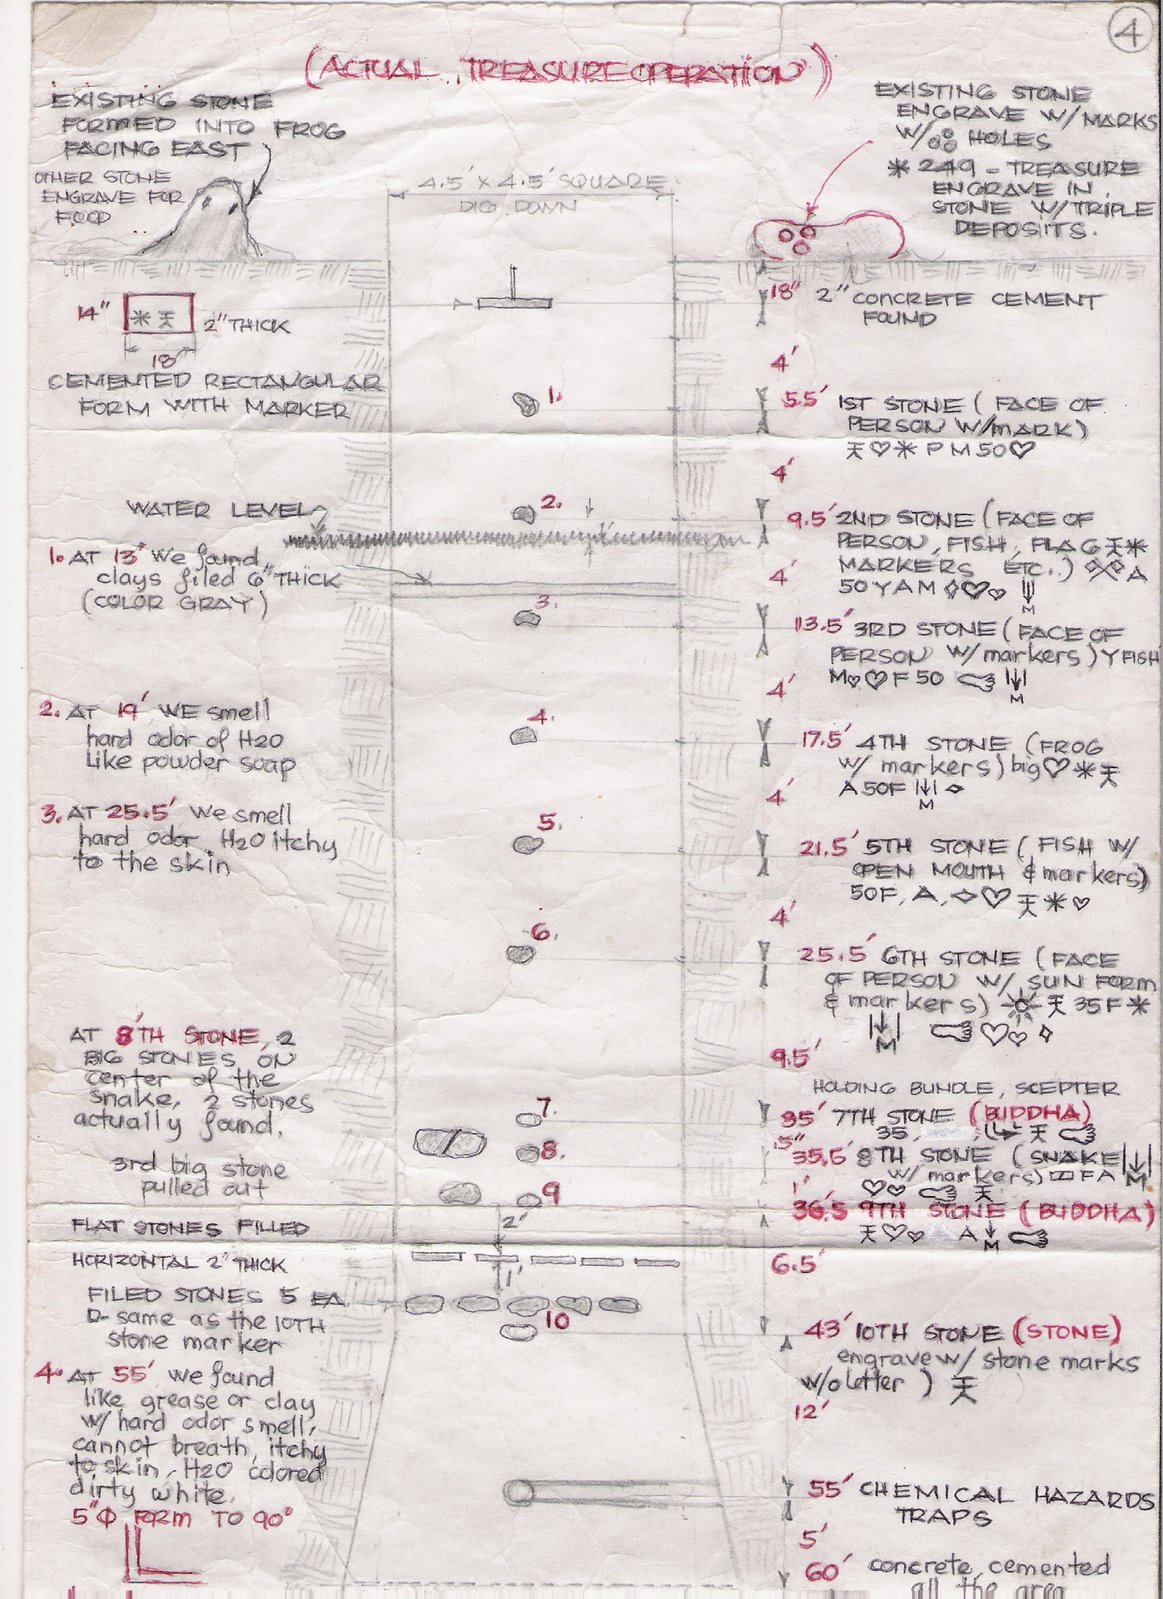 4
(ACTUAL TREASURE OPERATION)
EXISTING STONE
FORMED INTO FROG
FACING EAST
OTHER STONE
ENGRAVE FOR
FOOD
4.5' X 4.5' SQUARE
DIG DOWN
EXISTING STONE
ENGRAVE W/ MARKS
W/ HOLES
* 249 - TREASURE
ENGRAVE IN
STONE W/ TRIPLE
DEPOSITS.
14"
2" THICK
18"
CEMENTED RECTANGULAR
FORM WITH MARKER
WATER LEVEL
1. AT 13" We found
clays filed 6" THICK
(COLOR GRAY)
2. AT 19' WE smell
hard odor of H2O
like powder soap
3. AT 25.5' We smell
hard odor H2O itchy
to the skin
AT 8'TH STONE, 2
BIG STONES ON
center of the
snake, 2 stones
actually found.
3rd big stone
pulled out
FLAT STONES FILLED
HORIZONTAL 2" THICK
FILED STONES 5 EA.
D- same as the 10TH
stone marker
4. AT 55' we found
like grease or clay
w/ hard odor smell,
cannot breath, itchy
to skin, H2O colored
dirty white.
5"Φ FORM TO 90°
1.
2.
3.
4.
5.
6.
7.
8.
9
2'
1'
10
18" 2" CONCRETE CEMENT
FOUND
4'
5.5' 1ST STONE ( FACE OF
PERSON W/MARK)
天♡* P M 50♡
4'
9.5' 2ND STONE (FACE OF
PERSON, FISH, FLAG 天*
MARKERS ETC..) A
4' 50 Y A M ◇♡♡ M
13.5' 3RD STONE (FACE OF
PERSON W/ markers) Y FISH
M♡♡ F 50 M
4'
17.5' 4TH STONE (FROG
W/ markers) big♡*天
4' A 50F M ◇
21.5' 5TH STONE ( FISH W/
OPEN MOUTH & markers)
50F, A, ◇♡天*♡
4'
25.5' 6TH STONE ( FACE
OF PERSON W/ SUN FORM
& markers) 天 35 F *
M ♡♡◇
9.5'
HOLDING BUNDLE, SCEPTER
35' 7TH STONE (BUDDHA)
35, 天
.5" 35.5' 8TH STONE (SNAKE
W/ markers) F A M
1' ♡♡ 天
36.5 9TH STONE (BUDDHA)
天♡♡ A M
6.5'
43' 10TH STONE (STONE)
engrave w/ stone marks
w/o letter ) 天
12'
55' CHEMICAL HAZARDS
TRAPS
5'
60' concrete, cemented
all the area